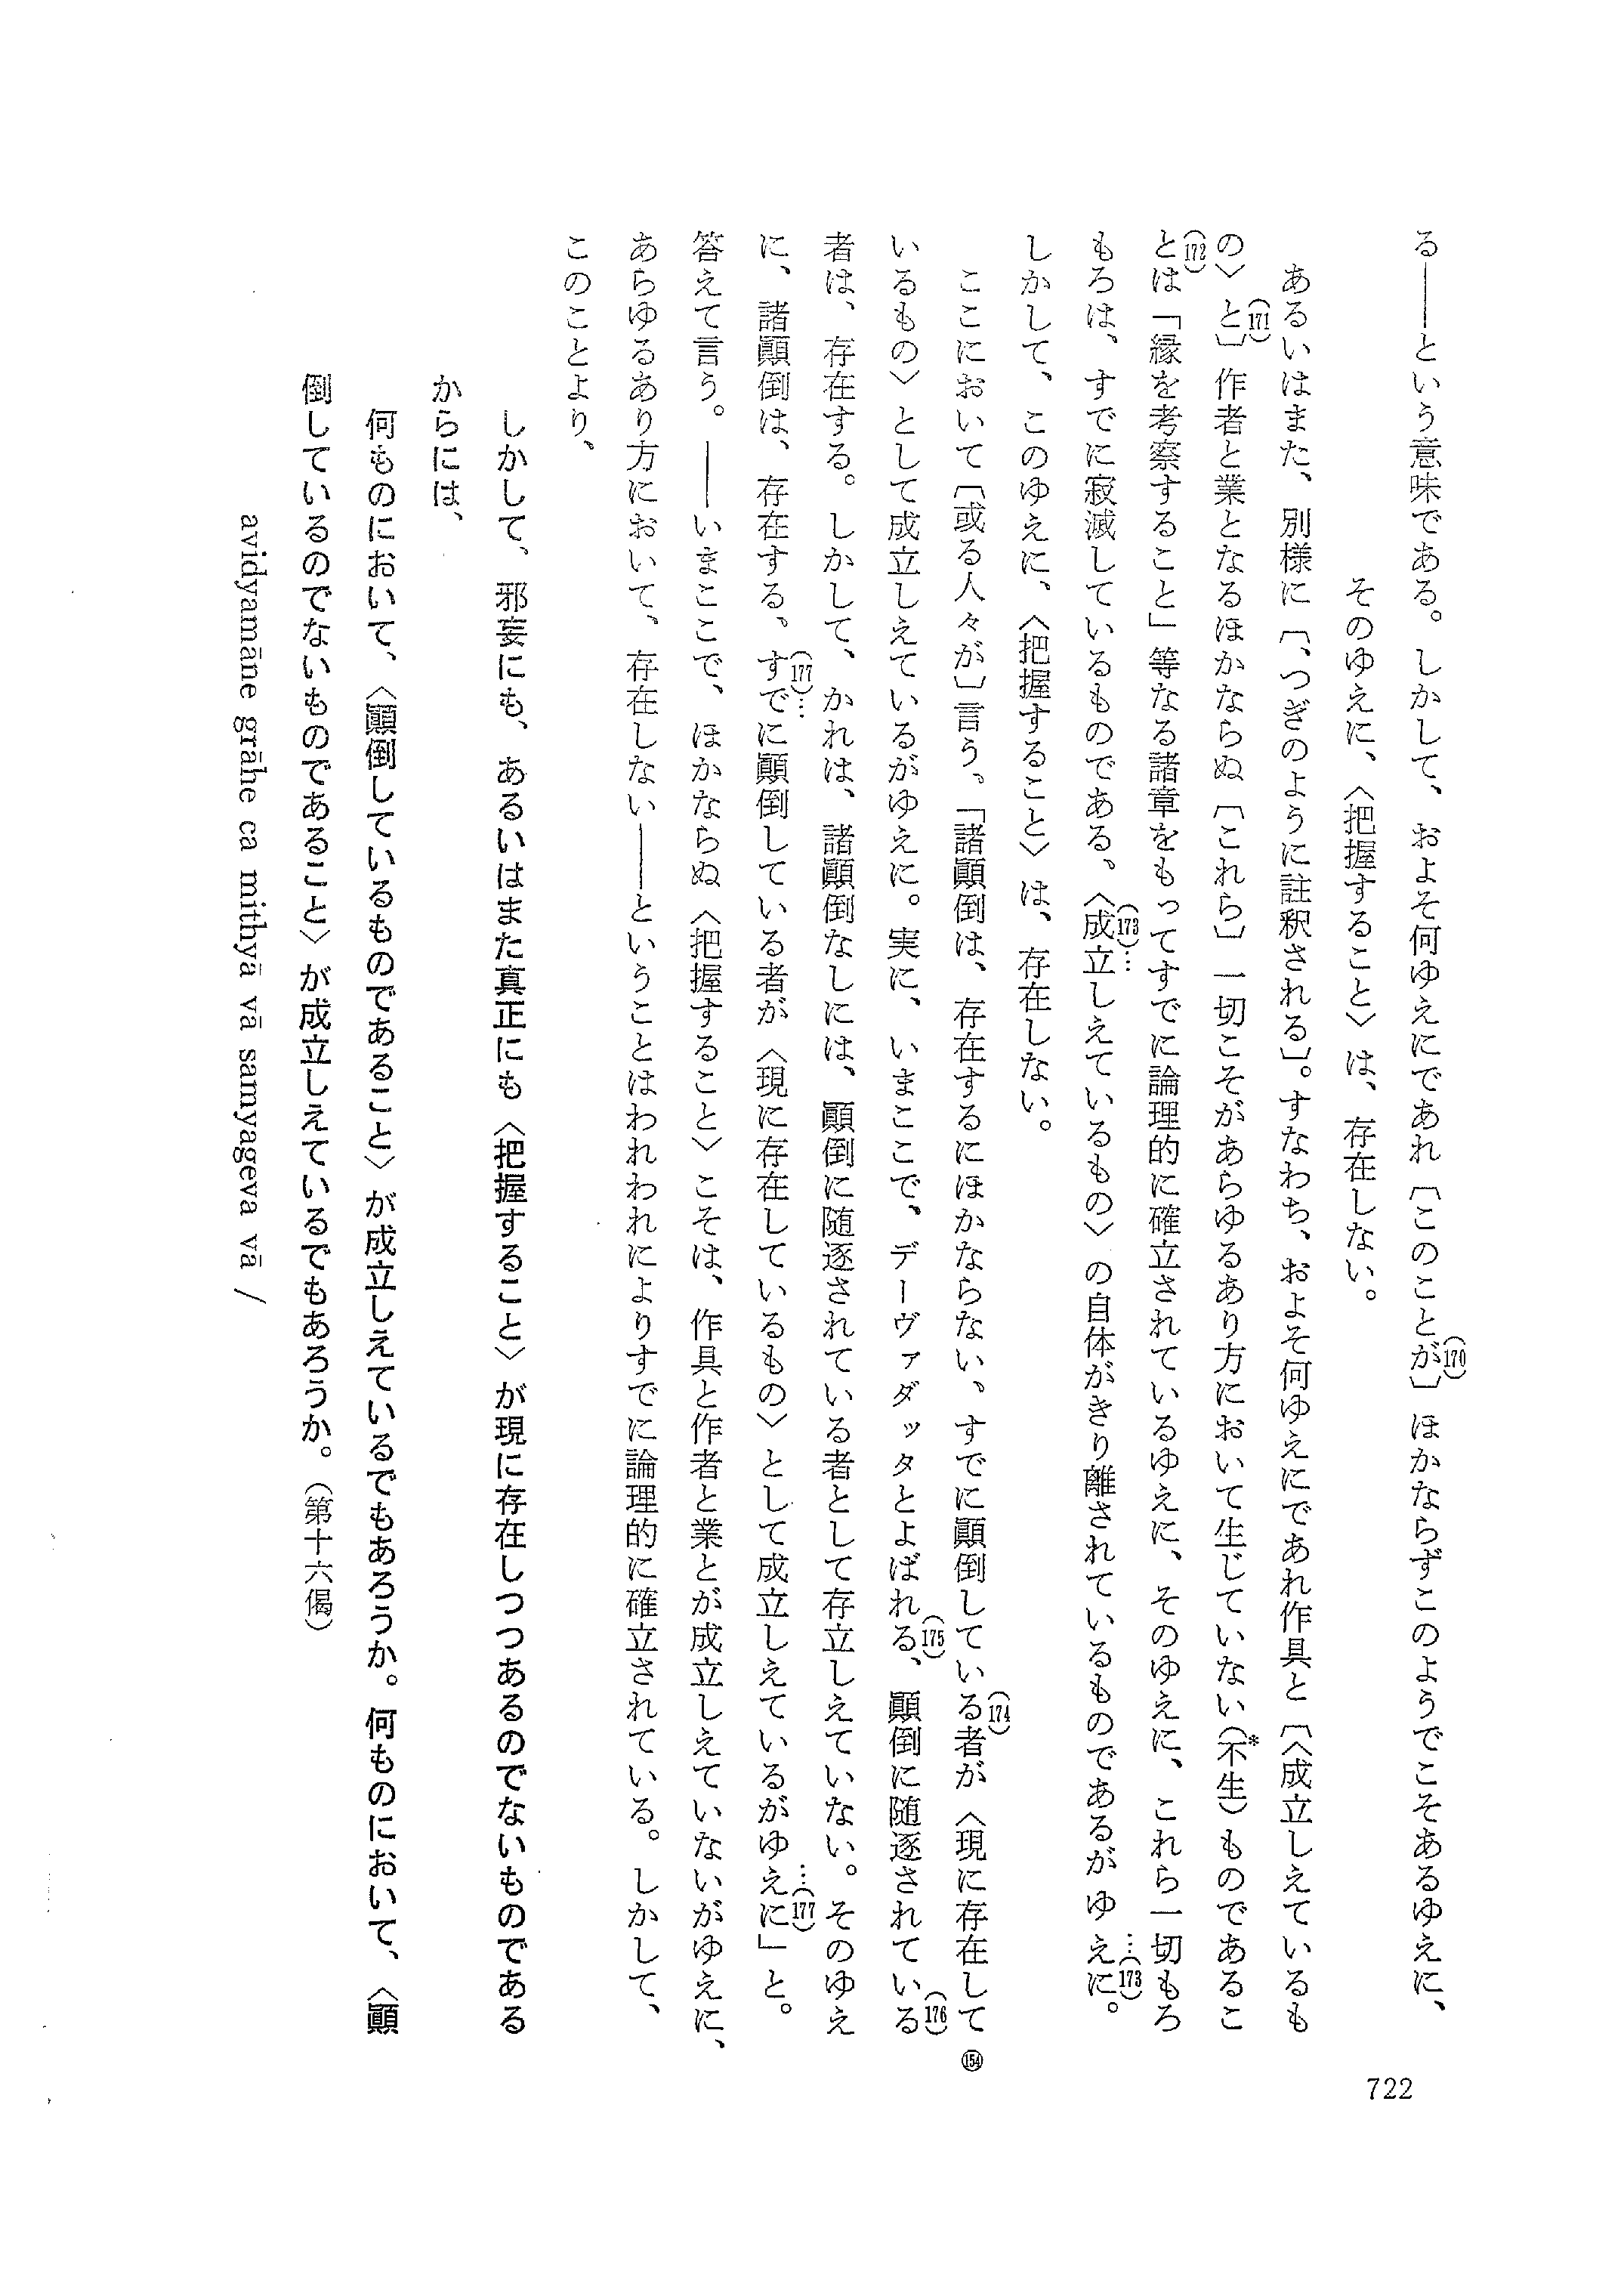 る――という意味である。しかして、およそ何ゆえにであれ〔このことが〕(170)ほかならずこのようでこそあるゆえに、
そのゆえに、〈把握すること〉は、存在しない。
あるいはまた、別様に〔、つぎのように註釈される〕。すなわち、およそ何ゆえにであれ作具と〔〈成立しえているも
の〉と〕(171)作者と業となるほかならぬ〔これら〕一切こそがあらゆるあり方において生じていない(不生)*ものであるこ
とは(172)「縁を考察すること」等なる諸章をもってすでに論理的に確立されているゆえに、そのゆえに、これら一切もろ
もろは、すでに寂滅しているものである、〈(173)…成立しえているもの〉の自体がきり離されているものであるがゆえに…(173)。
しかして、このゆえに、〈把握すること〉は、存在しない。
ここにおいて〔或る人々が〕言う。「諸顚倒は、存在するにほかならない、すでに顚倒している者(174)が〈現に存在して
いるもの〉として成立しえているがゆえに。実に、いまここで、デーヴァダッタとよばれる(175)、顚倒に随逐されている(176)
者は、存在する。しかして、かれは、諸顚倒なしには、顚倒に随逐されている者として存立しえていない。そのゆえ
に、諸顚倒は、存在する、(177)…すでに顚倒している者が〈現に存在しているもの〉として成立しえているがゆえに…(177)」と。
答えて言う。――いまここで、ほかならぬ〈把握すること〉こそは、作具と作者と業とが成立しえていないがゆえに、
あらゆるあり方において、存在しない――ということはわれわれによりすでに論理的に確立されている。しかして、
このことより、
しかして、邪妄にも、あるいはまた真正にも〈把握すること〉が現に存在しつつあるのでないものである
からには、
何ものにおいて、〈顚倒しているものであること〉が成立しえているでもあろうか。何ものにおいて、〈顚
倒しているのでないものであること〉が成立しえているでもあろうか。(第十六偈)
avidyamāne grāhe ca mithyā vā samyageva vā /
(154)
722